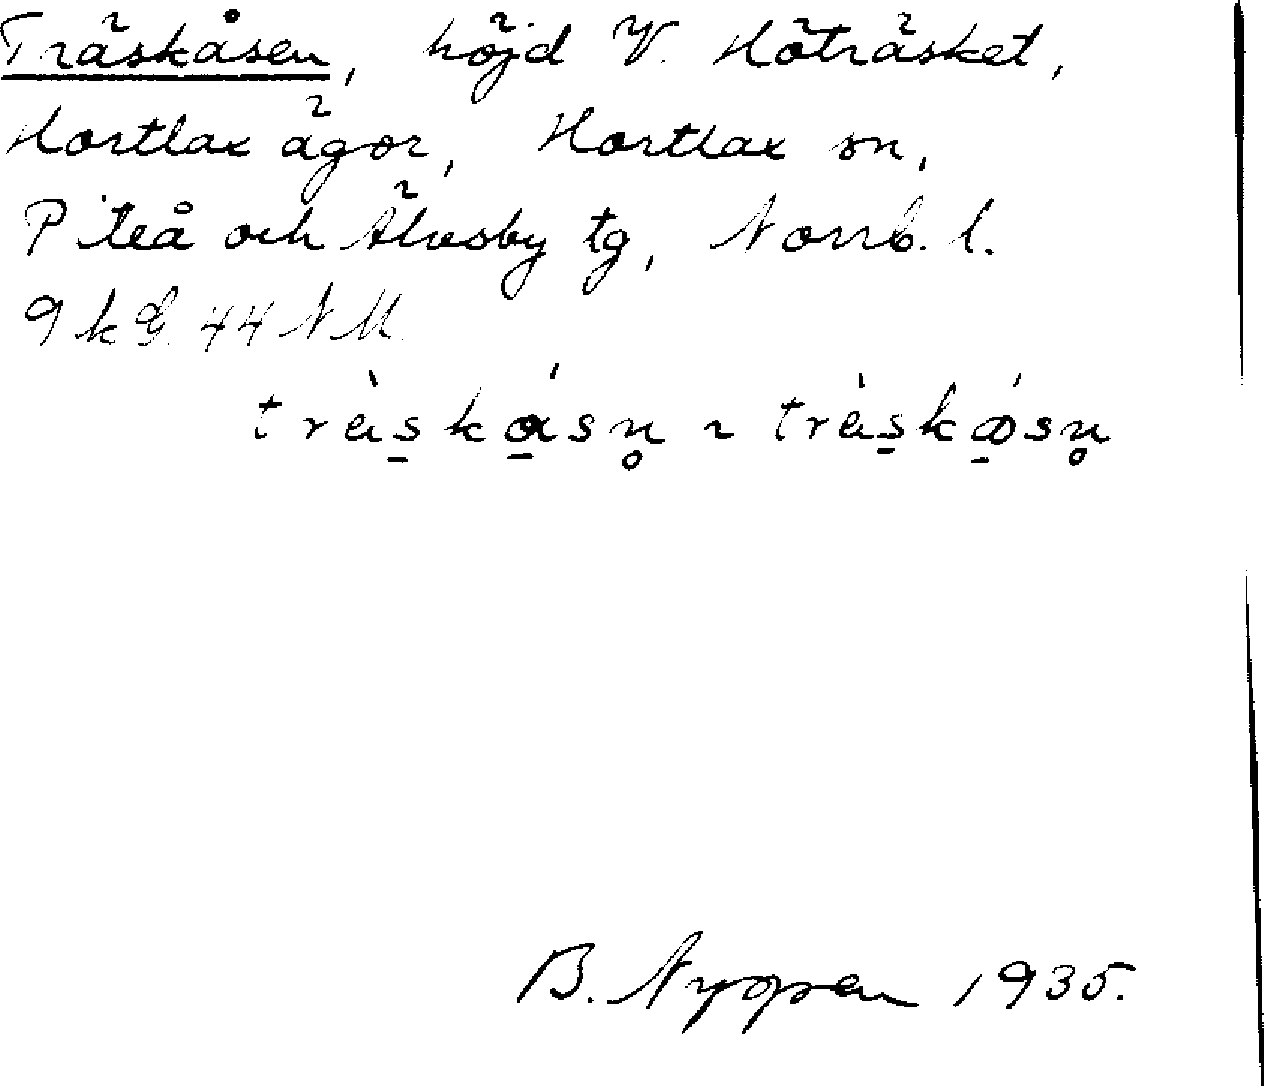 Träskåsen, höjd V. Höträsket,
Hortlax ägor, Hortlax sn,
Piteå och Älvsby tg, Norrb. l.
9 k G. 44 N M.
trä̀skǻsn̥ ~ trä̀skǿsn̥
B. Nygren 1935.